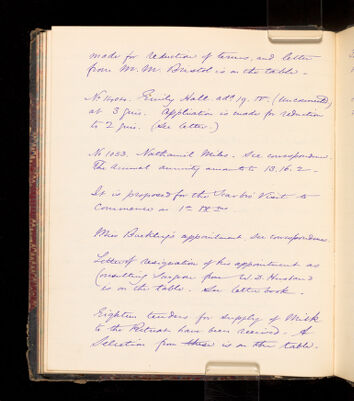 made for reduction of terms, and letter
from M. M. Bristol is on the table.
Emily Hall. ad. 19. (Unconnected)
at 3 guis. Application is made for reduction
to 2 guis. (See letter)
No 1053. Nathaniel Miles. See correspondence.
The annual annuity amounts to 13.16.2 —
It is proposed for the Visit to
commence on 1st
Miss Buckling's appointment. See correspondence.
Letter of resignation of his appointment as
Consulting Surgeon from W. D. Husband
is on the table. See letter book.
Eighteen tenders for supply of Milk
to the Retreat have been received. A
Selection from these is on the table.